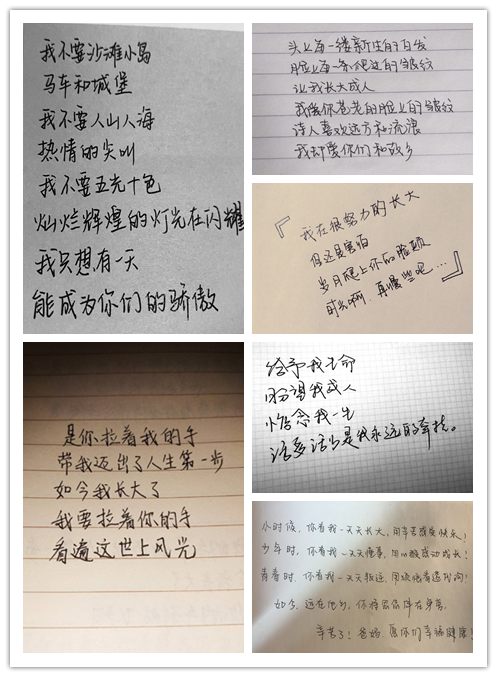 我不要沙滩小岛
马车和城堡
我不要人山人海
热情的尖叫
我不要五光十色
灿烂辉煌的灯光在闪耀
我只想有一天
能成为你们的骄傲
头上每一缕新生的白发
脸上每一条爬过的皱纹
让我长大成人
我爱你苍老的脸上的皱纹
诗人喜欢远方和流浪
我却爱你们和故乡
『
我在很努力的长大
但还是害怕
岁月爬上你的脸颊
时光啊，再慢些吧…
』
是你拉着我的手
带我迈出了人生第一步
如今我长大了
我要拉着你的手
看遍这世上风光
给予我生命
盼望我成人
惦念我一生
注定是我永远的牵挂。
小时候，你看我一天天长大，用辛苦感受快乐！
少年时，你看我一天天懂事，用心酸感动成长！
青春时，你看我一天天叛逆，
如今，远在他乡，你将
辛苦了！爸妈，愿你们幸福健康！